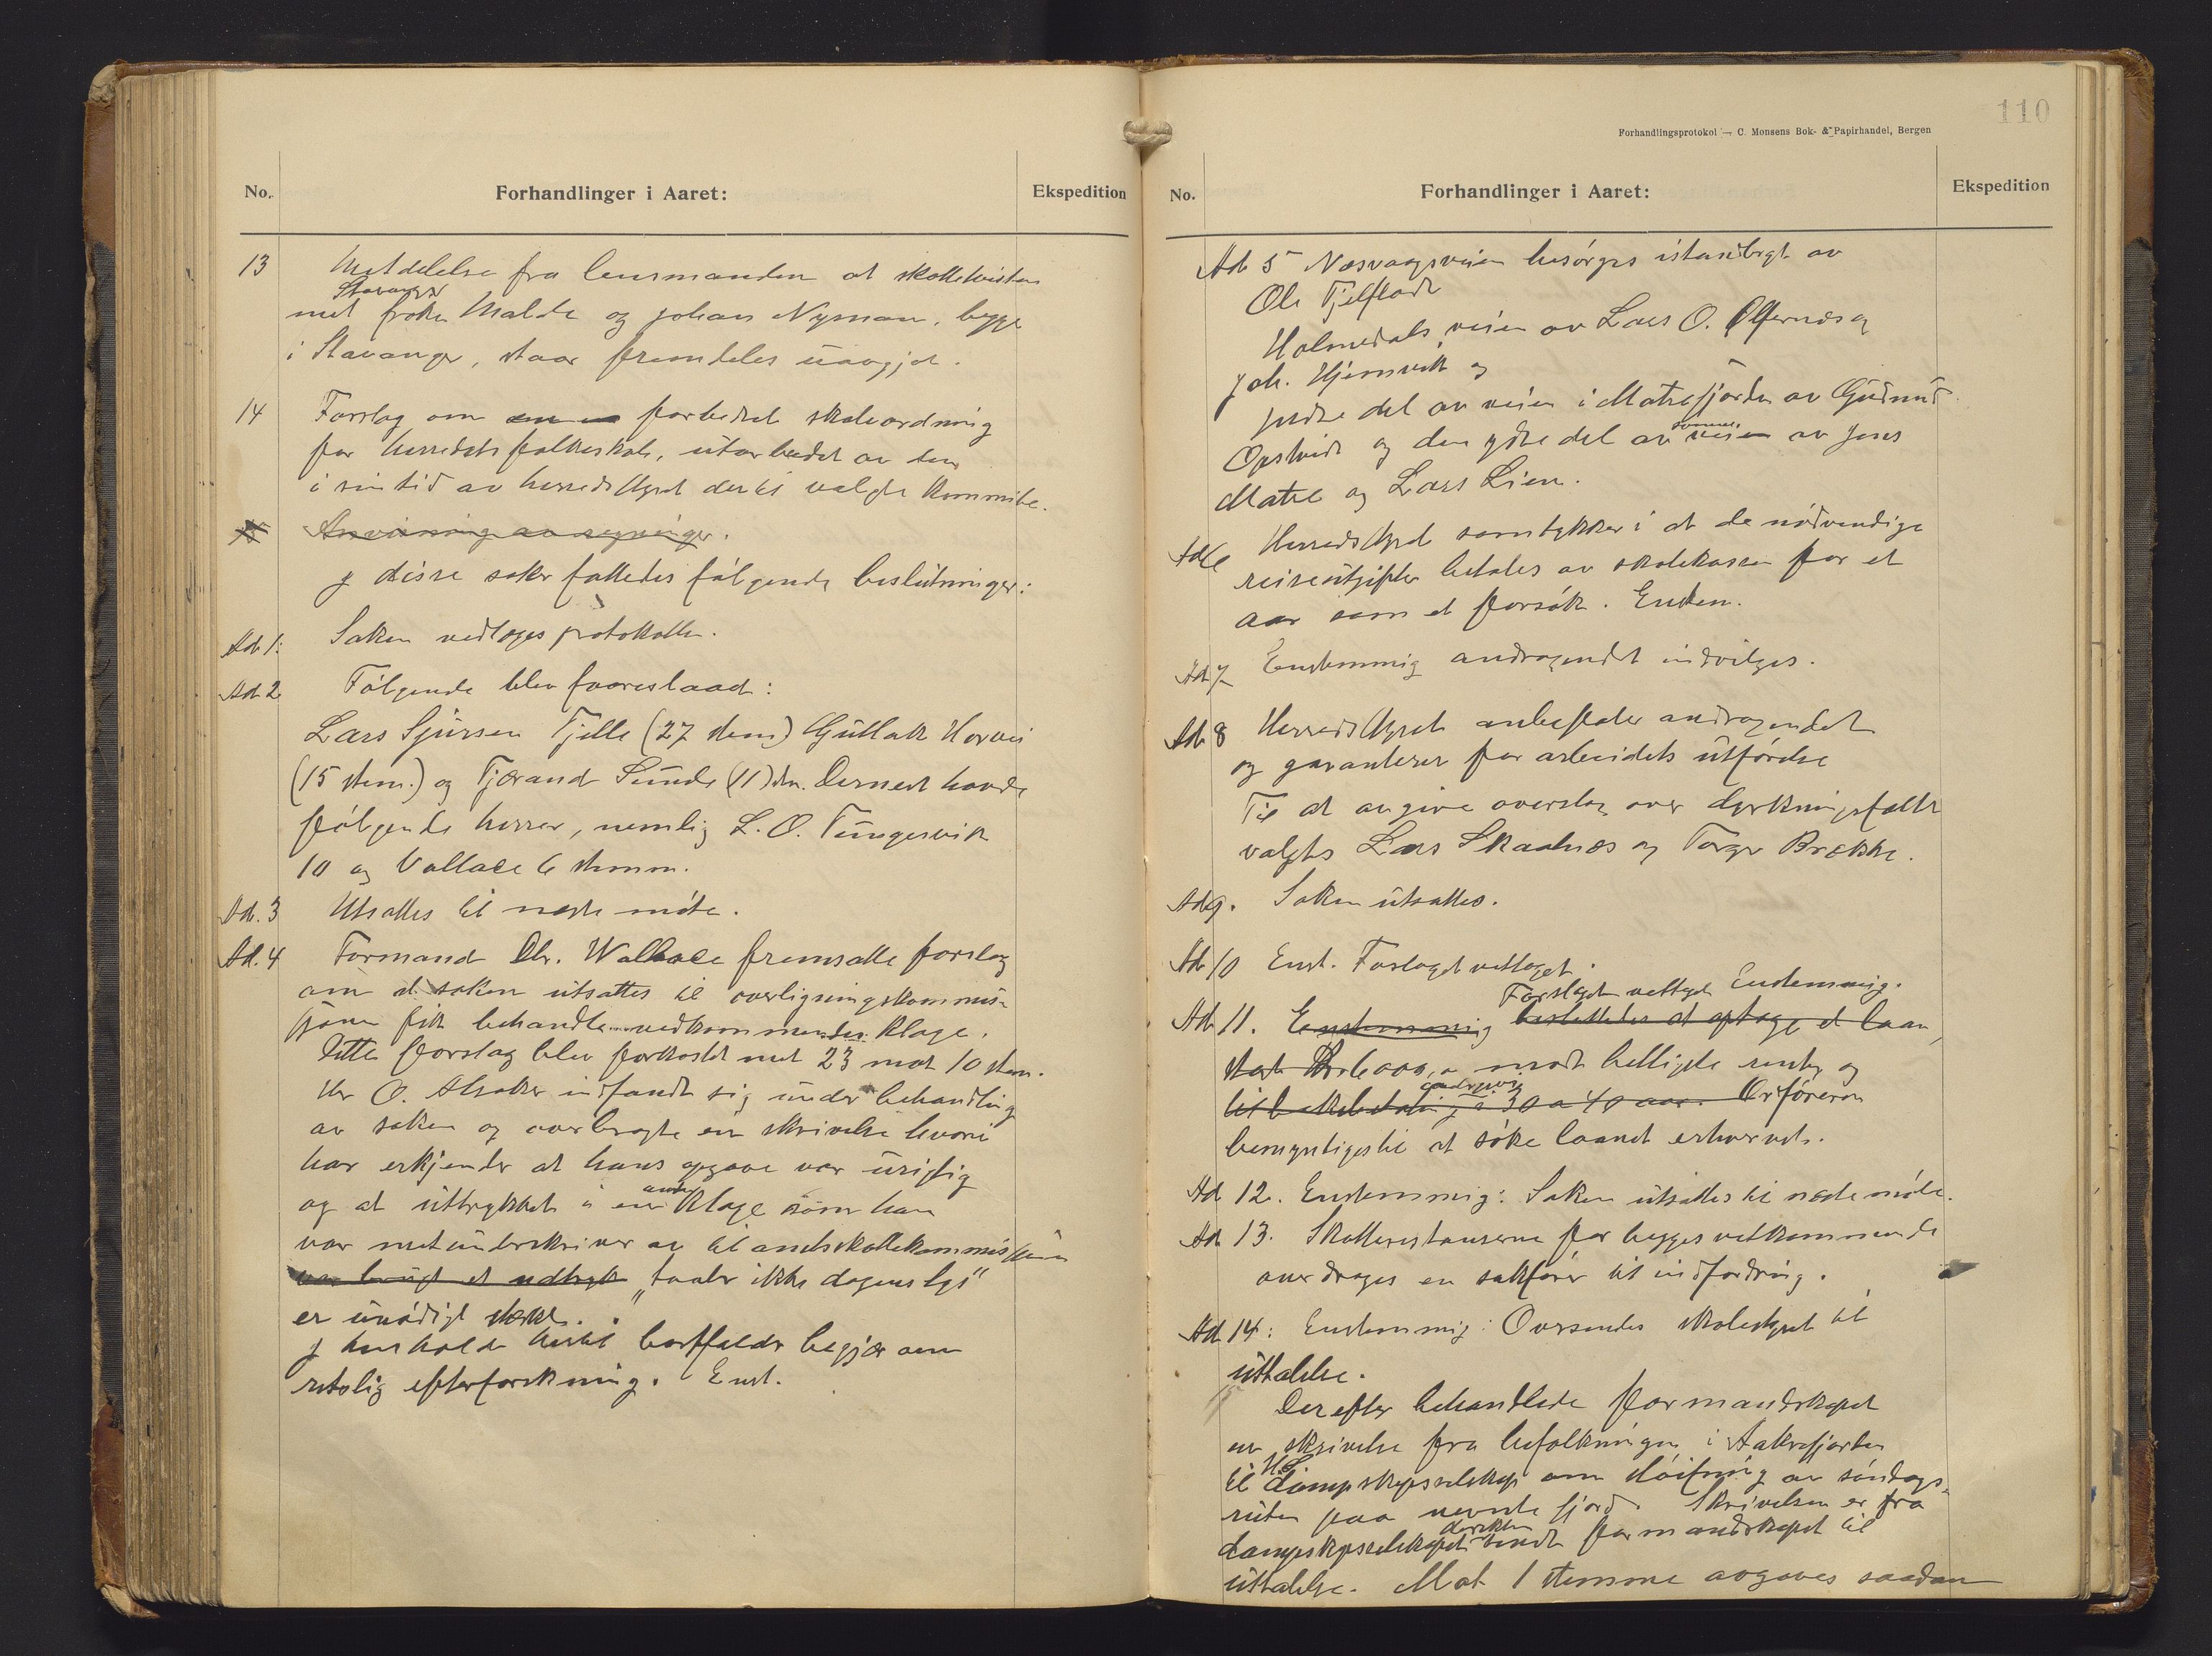 No. Forhandlinger i Aaret: Ekspedition
13 Meddelelse fra lensmanden at skattetvisten
Stavanger
med frøken Malde og Johan Nyman, begge
i Stavanger, staar fremdeles uavgjort.
14 Forslag om en forbedret skoleordning
for herredets folkeskole, utarbeidet av den
i sin tid av herredstyret dertil valgte kommite.
15 Anvisning av regninger.
I disse saker fattedes følgende beslutninger:
Ad 1: Saken vedlæges protokollen.
Ad 2 Følgende blev foreslaad:
Lars Sjursen Tjelle (27 stem) Guttak Horvei
(15 stem.) og Tjærand Sunde (11) stm. Dernest havde
følgende herrer, nemlig L. O. Tungesvik
10 og Vallace 6 stemm.
Ad. 3 Utsattes til neste møte.
Ad. 4 Formand Chr. Wallace fremsatte forslag
om at saken utsattes til overligningskommis-
sjonen fik behandle vedkommendes klage.
Dette forslag blev forkastet met 23 mot 10 stem.
Hr O. Alsaker indfandt sig under behandling
av saken og overbragte en skrivelse hvori
han erkjender at hans opgave var urigtig
og at uttrykket i en anden klage som han
var metunderskriver av til amtsskattekommissjonen
var brugt et udtryk "taaler ikke dagens lys"
er unødigt sterkt.
I henhold hertil bortfalder begjær om
retslig efterforskning. Enst.
110
Forhandlingsprotokol — C. Monsens Bok- & Papirhandel, Bergen
No. Forhandlinger i Aaret: Ekspedition
Ad 5 Næsvaagsveien besørges istandbragt av
Ole Fjelflaat
Holmedalsveien av Lars O. Ølfernæs og
Joh. Hjemvik og
Indre del av veien i Matrefjorden av Gudmund
Opstveit og den ydre del av samme veien av Jens
Matre og Lars Lien.
Ad 6 Herredstyret samtykker i at de nødvendige
reiseutgifter betales av skolekassen for et
aar som et forsøk. Enstem.
Ad 7 Enstemmig andragendet indvilges.
Ad 8 Herredstyret anbefaler andragendet
og garanterer for arbeidets utførelse
Til at avgive overslag over dyrkningsfeltet
valgtes Lars Skaalnæs og Torger Brække.
Ad 9. Saken utsattes.
Ad 10 Enst. Forslaget vettaget.
Forslaget vettaget Enstemmig.
Ad 11. Enstemmig besluttedes at optage et laan,
stort Kr 6000,- mod billigste rente og
til tilbakebetaling i 30 a 40 aar. Ordføreren
bemyndiges til at søke laanet erhvervet.
Ad 12. Enstemmig: Saken utsattes til næste møte.
Ad 13. Skatterestanserne for begges vetkommende
overdrages en sakfører til indfordring.
Ad 14: Enstemmig: Oversendes skolestyret til
uttalelse.
Derefter behandlede formandskapet
en skrivelse fra befolkningen i Aakrefjorden
til H.S. Dampskipsselskap om sløifning av søndags-
ruten paa nevnte fjord. Skrivelsen er fra
dampskipsselskapet direkte sendt formandskapet til
uttalelse. Mot 1 stemme avgaves saadan